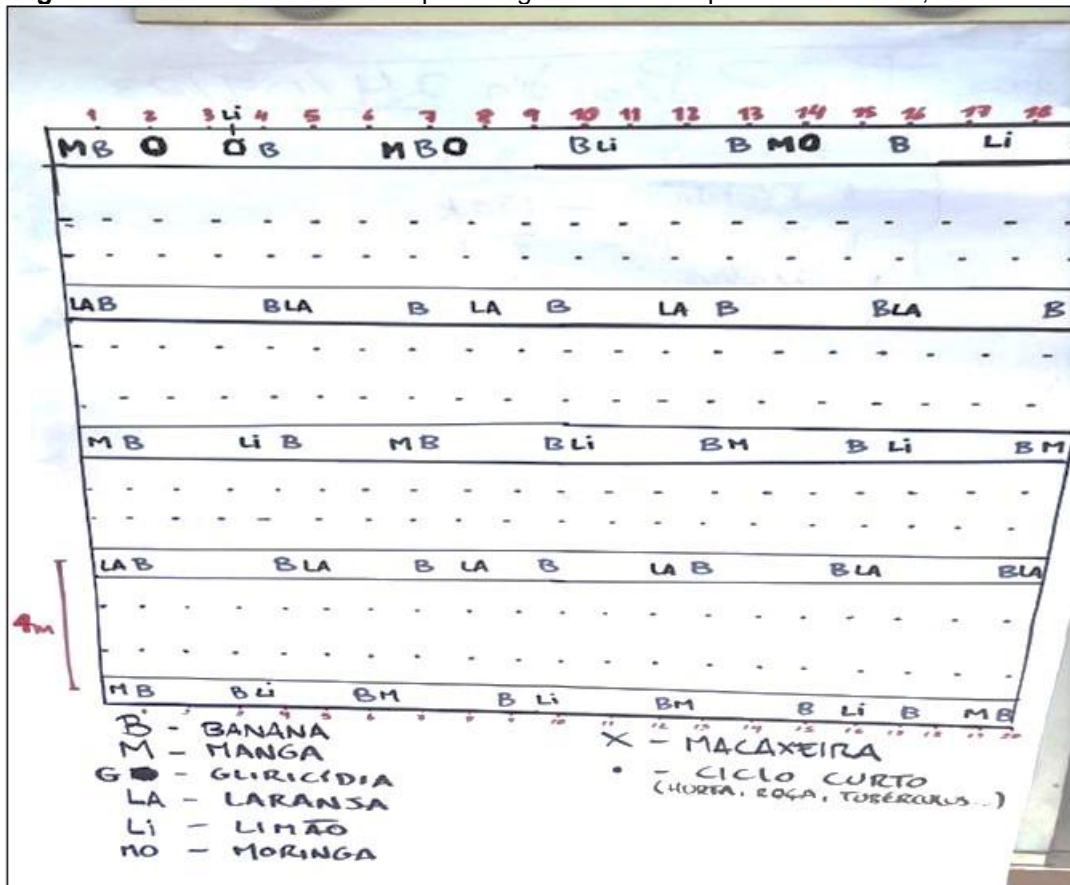 1 2 3 Li 4 5 6 7 8 9 10 11 12 13 14 15 16 17 18
M B O O B M B O B Li B M O B Li
LA B B LA B LA B LA B B LA B
M B Li B M B B Li B M B Li B M
LA B B LA B LA B LA B B LA B LA
4m
M B B Li B M B Li B M B Li B M B
4 5 6 7 8 9 10 11 12 13 14 15 16 17 18 19 20
B - BANANA
M - MANGA
G - GLIRICÍDIA
LA - LARANJA
Li - LIMÃO
MO - MORINGA
X - MACAXEIRA
• - CICLO CURTO
(HORTA, ROÇA, TUBÉRCULOS...)